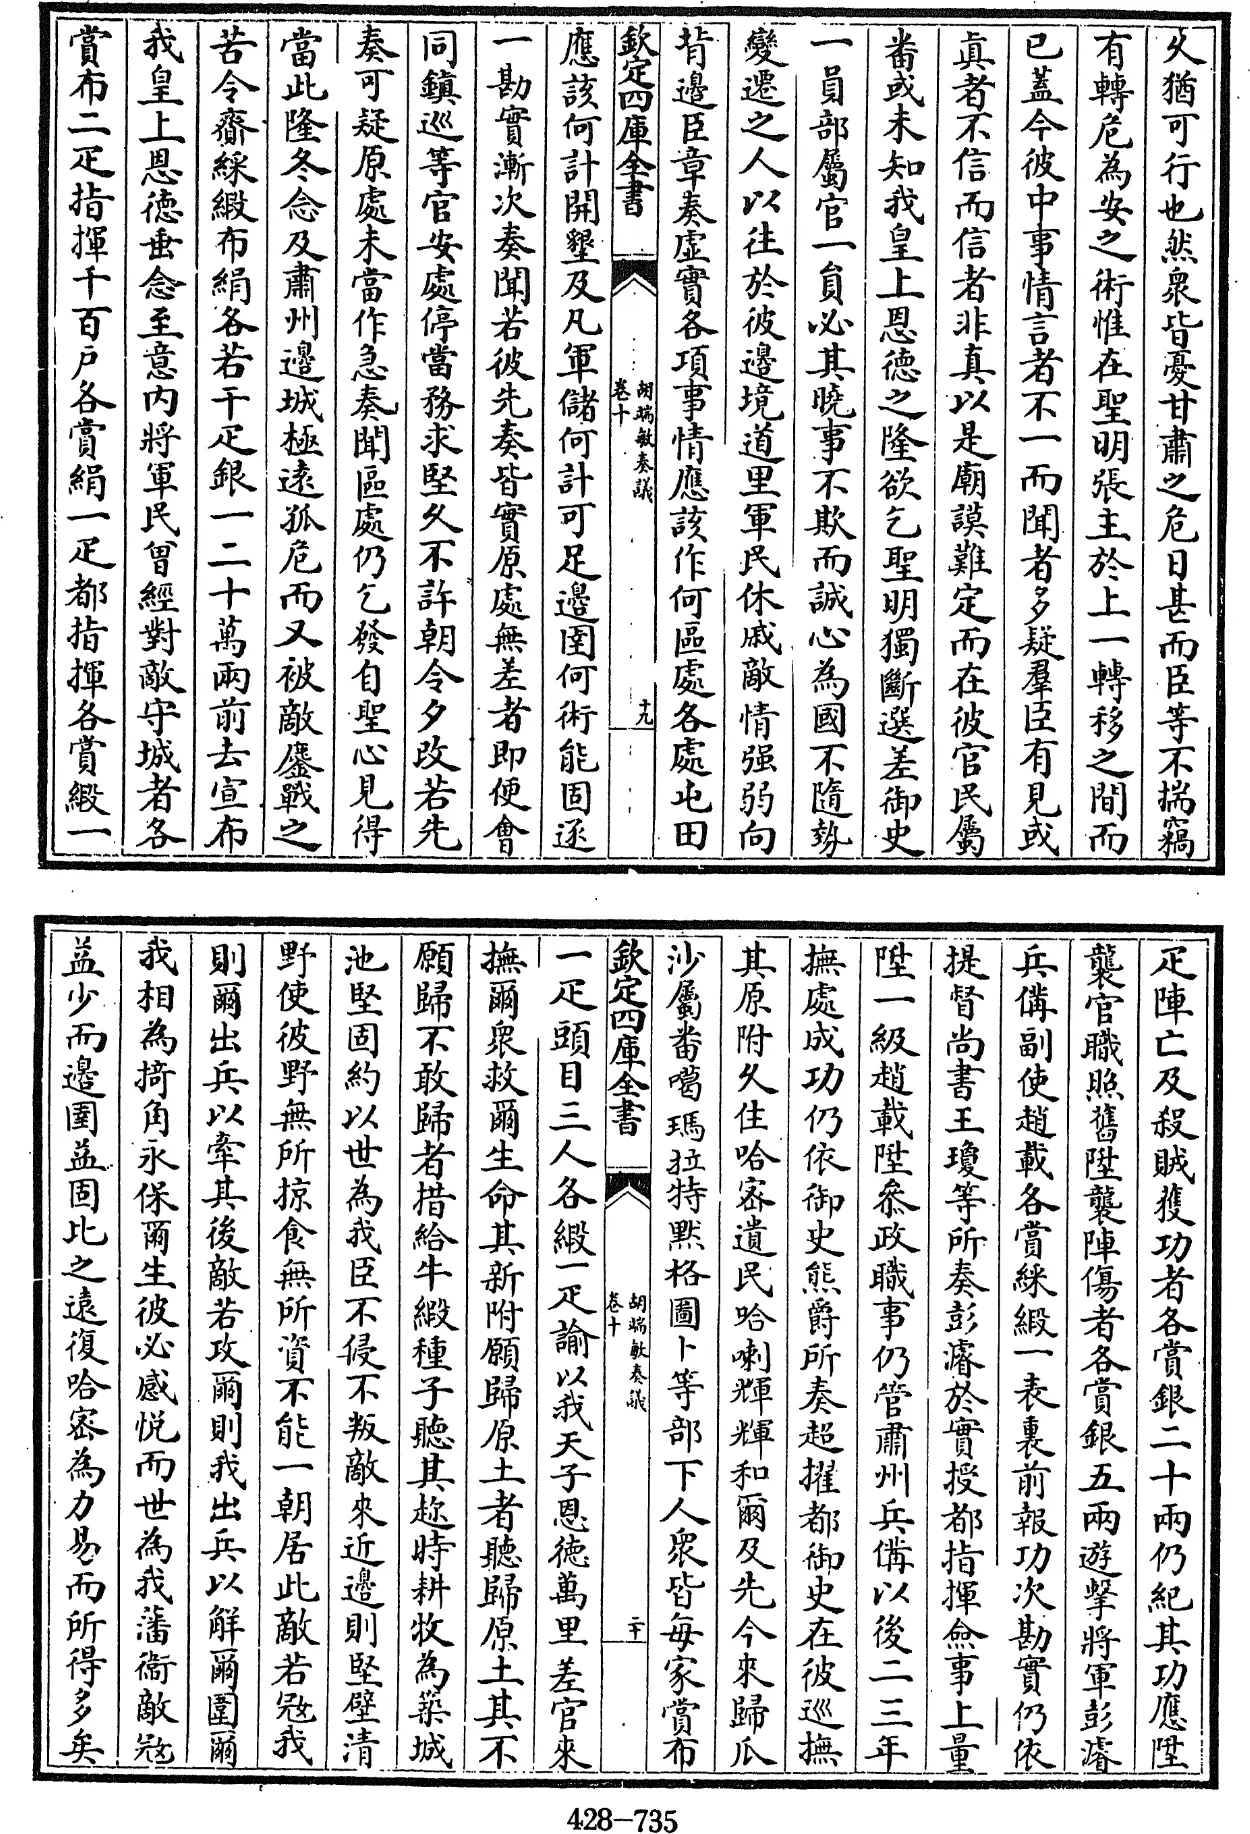 乆猶可行也然衆皆憂甘肅之危日甚而臣等不揣竊
有轉危為安之術惟在聖明張主於上一轉移之間而
已蓋今彼中事情言者不一而聞者多疑羣臣有見或
真者不信而信者非真以是廟謨難定而在彼官民屬
畨或未知我皇上恩徳之隆欲乞聖明獨斷選差御史
一員部屬官一員必其曉事不欺而誠心為國不隨勢
變遷之人以往於彼邊境道里軍民休戚敵情强弱向
背邉臣章奏虚實各項事情應該作何區處各處屯田
欽定四庫全書
胡端敏奏議
卷十
十九
應該何計開墾及凡軍儲何計可足邊圉何術能固逐
一勘實漸次奏聞若彼先奏皆實原處無差者即便會
同鎮巡等官安處停當務求堅乆不許朝令夕改若先
奏可疑原處未當作急奏聞區處仍乞發自聖心見得
當此隆冬念及肅州邉城極逺孤危而又被敵鏖戰之
苦令齎綵緞布絹各若干疋銀一二十萬兩前去宣布
我皇上恩徳垂念至意内將軍民曾經對敵守城者各
賞布二疋指揮千百户各賞絹一疋都指揮各賞緞一
疋陣亡及殺賊獲功者各賞銀二十兩仍紀其功應陞
襲官職照舊陞襲陣傷者各賞銀五兩遊擊將軍彭濬
兵備副使趙載各賞綵緞一表裏前報功次勘實仍依
提督尚書王瓊等所奏彭濬於實授都指揮僉事上量
陞一級趙載陞叅政職事仍管肅州兵備以後二三年
撫處成功仍依御史熊爵所奏超擢都御史在彼巡撫
其原附乆住哈宻遺民哈喇輝輝和爾及先今來歸瓜
沙屬畨噶瑪拉特默格圖卜等部下人衆皆每家賞布
欽定四庫全書
胡端敏奏議
卷十
二十
一疋頭目三人各緞一疋諭以我天子恩徳萬里差官來
撫爾衆救爾生命其新附願歸原土者聽歸原土其不
願歸不敢歸者措給牛緞種子聽其趂時耕牧為築城
池堅固約以世為我臣不侵不叛敵來近邉則堅壁清
野使彼野無所掠食無所資不能一朝居此敵若㓂我
則爾出兵以牽其後敵若攻爾則我出兵以解爾圍爾
我相為掎角永保爾生彼必感悦而世為我藩衞敵㓂
益少而邉圉益固比之逺復哈宻為力易而所得多矣
428-735